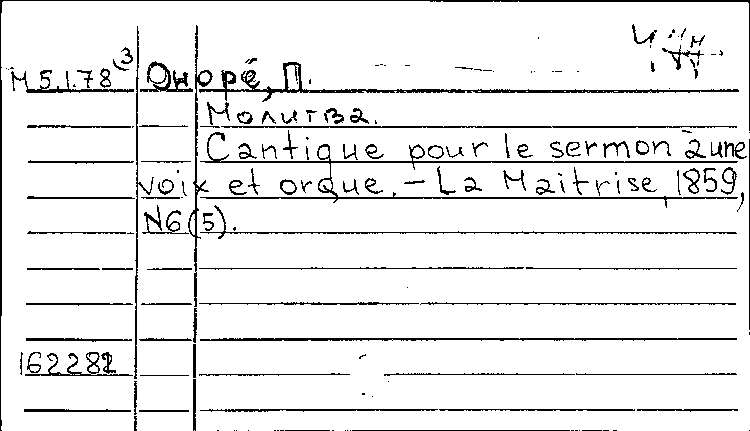 М5.1.78(3 Оноре, П.
Молитва.
Cantique pour le sermon à une
voix et orque. – La Maitrise, 1859,
N6(5).
162282